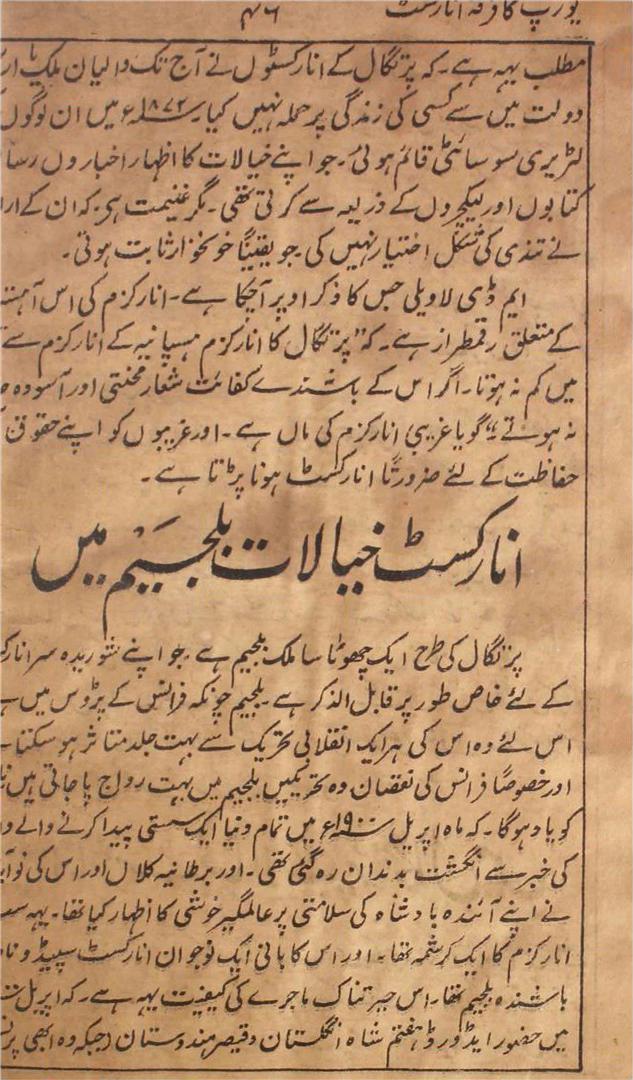 یورپ کا فرقہ انارکسٹ ۴۶
مطلب یہہ ہے۔ کہ پرتگال کے انارکسٹوں نے آج تک والیان ملک یا ار
دولت میں سے کسی کی زندگی پر حملہ نہیں کیا ۱۸۷۲ء میں ان لوگوں
لٹریری سوسائٹی قائم ہوئی۔ جو اپنے خیالات کا اظہار اخباروں رسا
کتابوں اور لیکچروں کے ذریعہ سے کرتی تھی۔ مگر غنیمت ہی کہ ان کے ارا
نے تندی کی شکل اختیار نہیں کی جو یقیناً خونخوار ثابت ہوتی۔
ایم ڈی لاویلی جس کا ذکر اوپر آچکا ہے۔ انارکزم کی اس آہست
کے متعلق رقمطراز ہے۔ کہ "پرتگال کا انارکزم ہسپانیہ کے انارکزم سے
میں کم نہ ہوتا۔ اگر اس کے باشندے کفائت شعار محنتی اور آسودہ
نہ ہوتے"۔ گویا غریبی انارکزم کی ماں ہے۔ اور غریبوں کو اپنے حقوق
حفاظت کے لئے ضرورتاً انارکسٹ ہونا پڑتا ہے۔
انارکسٹ خیالات بلجیم میں
پرتگال کی طرح ایک چھوٹا سا ملک بلجیم ہے جو اپنے شوریدہ سر انارک
کے لئے خاص طور پر قابل الذکر ہے۔ بلجیم چونکہ فرانس کے پڑوس میں ہے
اس لئے وہ اس کی ہر ایک انقلابی تحریک سے بہت جلد متاثر ہو سکتا۔
اور خصوصاً فرانس کی نقصان دہ تحریکیں بلجیم میں بہت رواج پا جاتی ہیں
کو یاد ہوگا۔ کہ ماہ اپریل ۱۹۰۰ء میں تمام دنیا ایک سنسنی پیدا کرنے والے وا
کی خبر سے انگشت بدندان رہ گئی تھی۔ اور برطانیہ کلاں اور اس کی نوآبا
نے اپنے آئندہ بادشاہ کی سلامتی پر عالمگیر خوشی کا اظہار کیا تھا۔ یہہ سب
انارکزم کا ایک کرشمہ تھا۔ اور اس کا بانی ایک نوجوان انارکسٹ سپیڈو نام
باشندہ بلجیم تھا۔ اس حیرتناک ماجرے کی کیفیت یہہ ہے۔ کہ اپریل
میں حضور ایڈورڈ ہفتم شاہ انگلستان و قیصر ہندوستان (جبکہ وہ ابھی پرنس